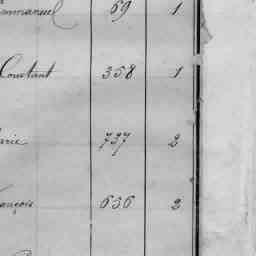 mmanuel 69 1
Constant 358 1
arie 737 2
ançois 656 2